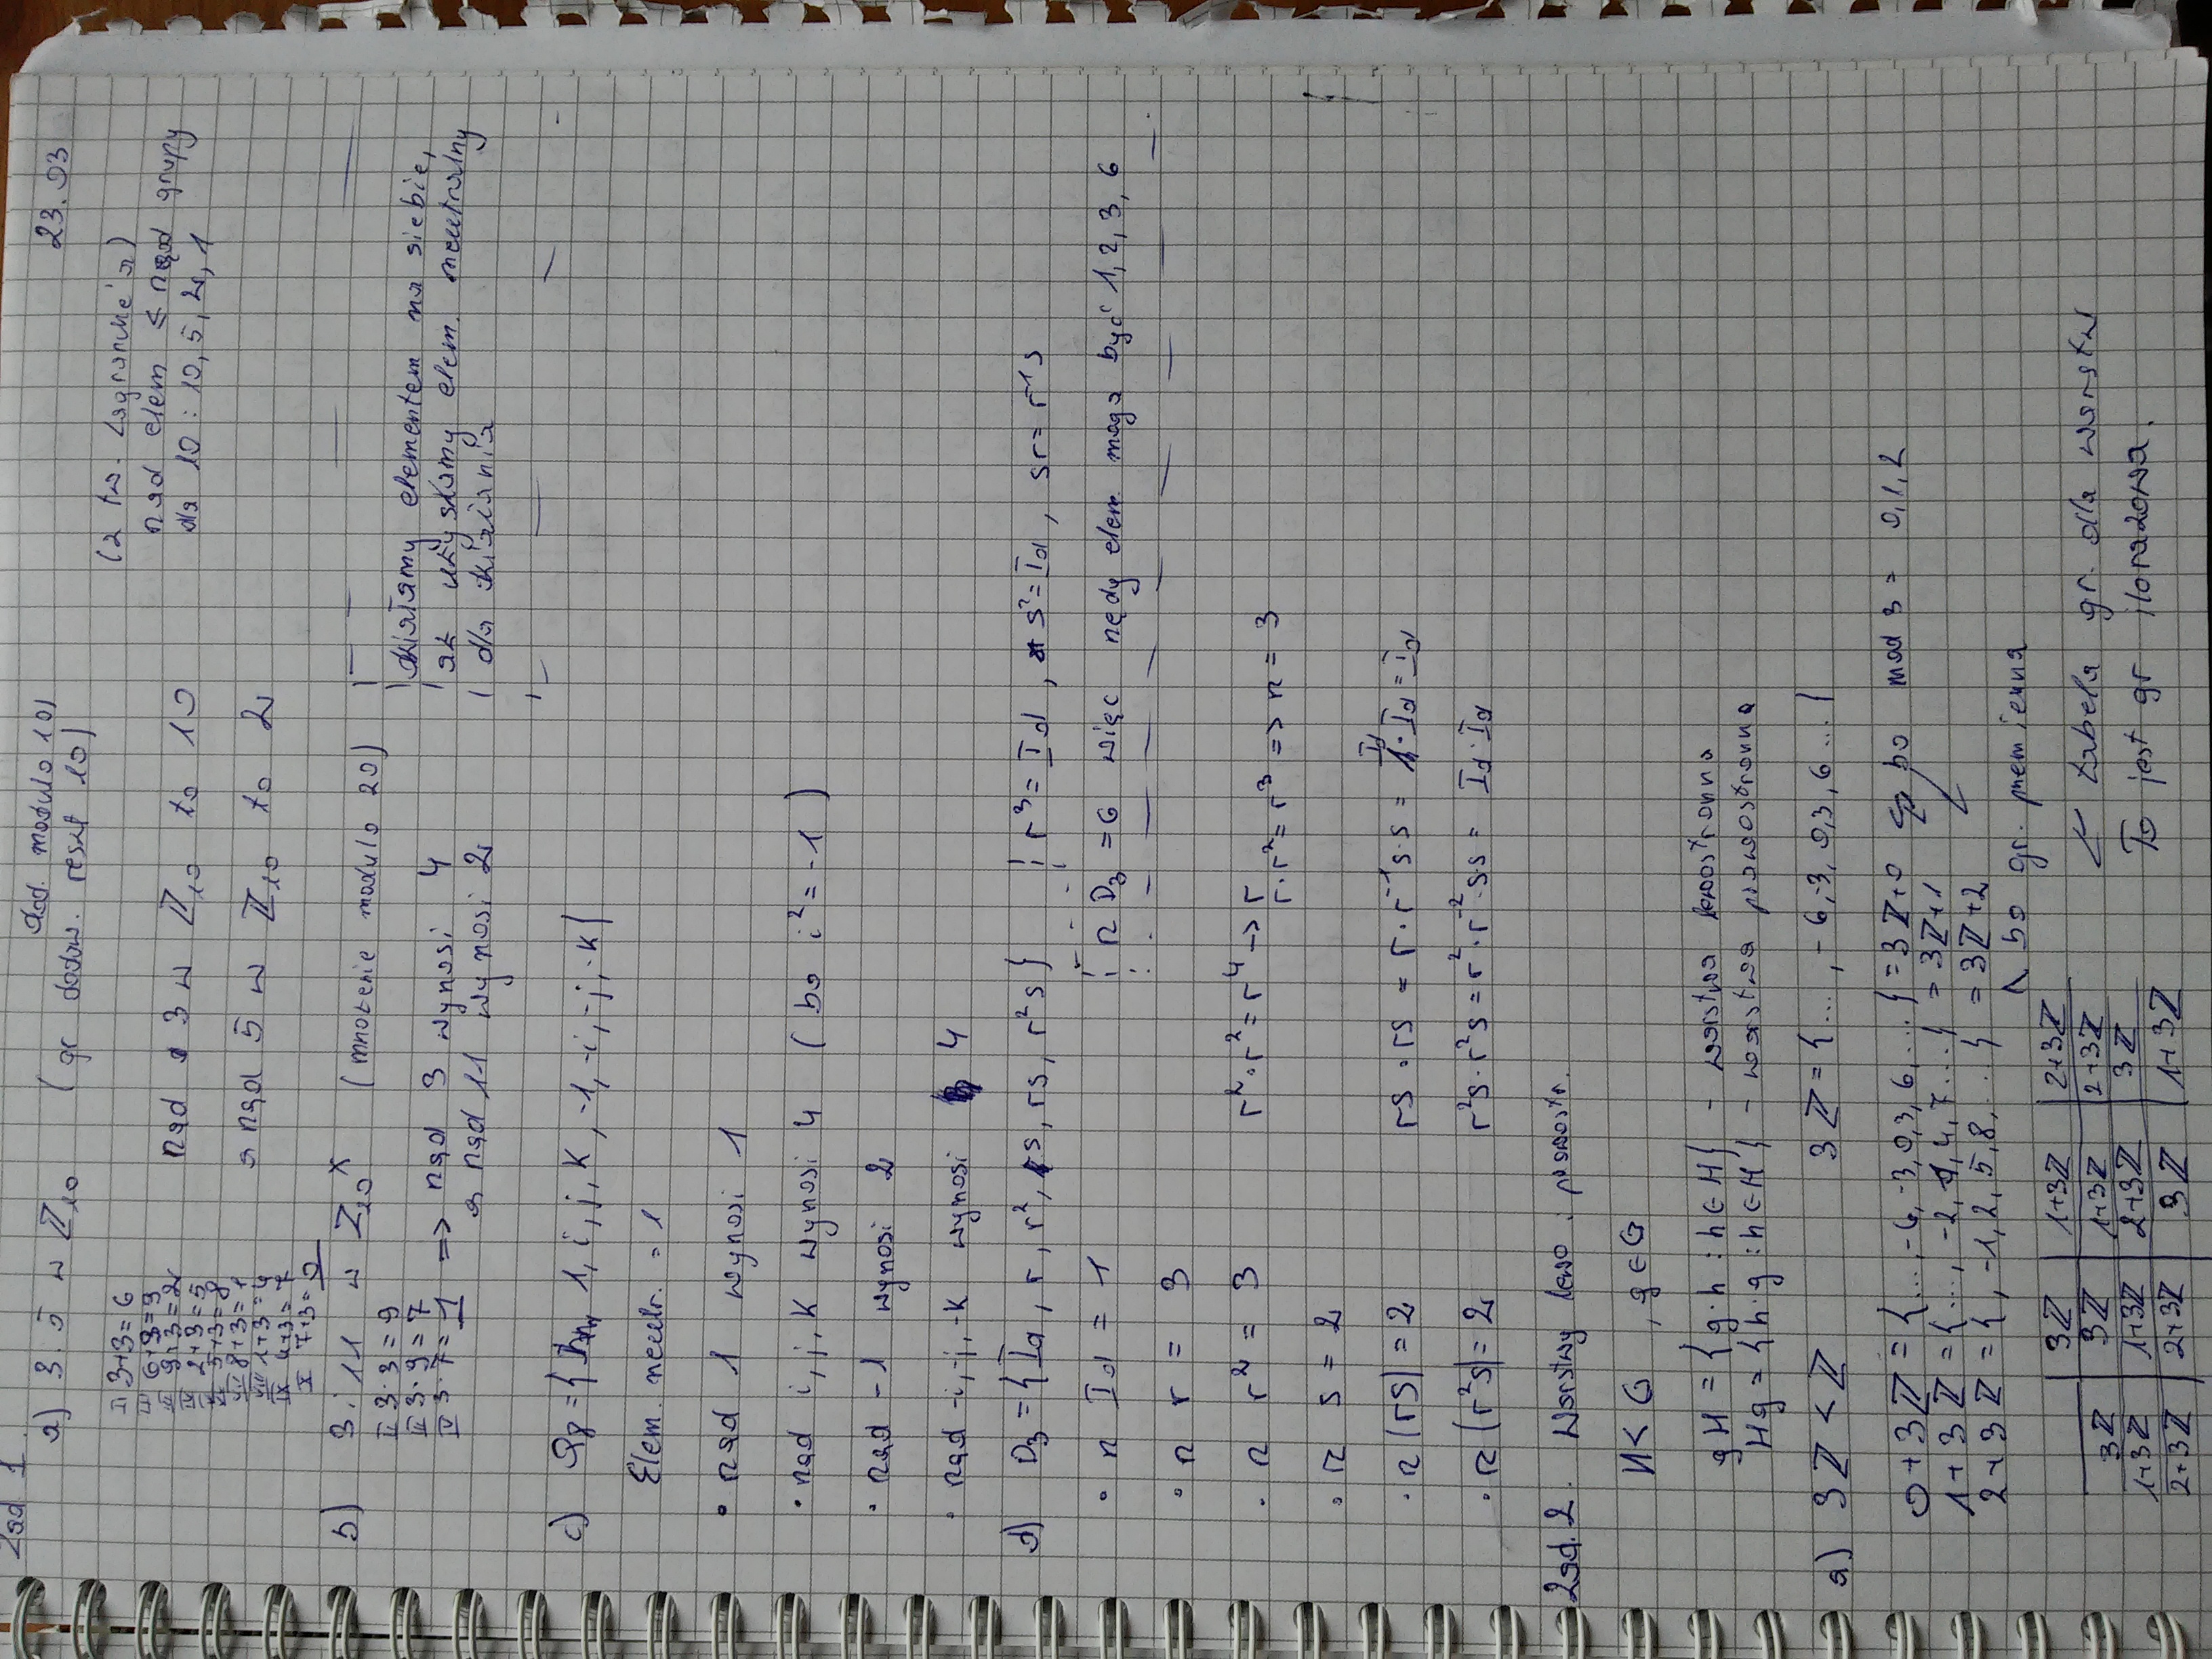 Zad 1
23.03
a) 3 i 5 w ℤ₁₀ (gr dodaw. reszt 10)
dod. modulo 10)
II 3+3=6
III 6+3=9
9+3=2
2+3=5
5+3=8
8+3=1
1+3=4
IX 4+3=7
X 7+3=0
rząd 3 w ℤ₁₀ to 10
a rząd 5 w ℤ₁₀ to 2
(z tw. Lagranke'a)
rząd elem ≤ rząd grupy
dla 10 : 10, 5, 2, 1
b) 3 i 11 w ℤ₂₀ˣ (mnożenie modulo 20)
II 3·3=9
III 3·9=7
IV 3·7=1 => rząd 3 wynosi 4
a rząd 11 wynosi 2
działamy elementem na siebie,
aż uzyskamy elem. neutralny
dla działania
c) Q₈={1, i, j, k, -1, -i, -j, -k}
Elem. neutr. = 1
• rząd 1 wynosi 1
• rząd i, j, k wynosi 4 (bo i²=-1)
• rząd -1 wynosi 2
• rząd -i, -j, -k wynosi 4
d) D₃={Id, r, r², s, rs, r²s} r³=Id, s²=Id, sr=r⁻¹s
• rz Id = 1
rz D₃ = 6 więc rzędy elem. mogą być 1, 2, 3, 6
• rz r = 3
• rz r² = 3 r²·r²=r⁴ -> r
r·r²=r³ => rz = 3
• rz s = 2
• rz (rs)=2 rs·rs = r·r⁻¹s·s = Id·Id=Id
• rz (r²s)=2 r²s·r²s=r²·r⁻²·s·s= Id·Id
Zad. 2. Warstwy lewo i prawostr.
H<G , g∈G
gH={g·h : h∈H} - warstwa lewostronna
Hg={h·g : h∈H} - warstwa prawostronna
a) 3ℤ<ℤ 3ℤ={..., -6,-3, 0,3, 6 ...}
0+3ℤ={..., -6, -3, 0, 3, 6, ...} =3ℤ+0 <= bo mod 3 = 0,1,2
1+3ℤ={..., -2, 1, 4, 7 ...} =3ℤ+1
2+3ℤ={, -1, 2, 5, 8, ...} =3ℤ+2
^ bo gr. przemienna
3ℤ 1+3ℤ 2+3ℤ
3ℤ 3ℤ 1+3ℤ 2+3ℤ
1+3ℤ 1+3ℤ 2+3ℤ 3ℤ
2+3ℤ 2+3ℤ 3ℤ 1+3ℤ
<- tabela gr. dla warstw
To jest gr ilorazowa.